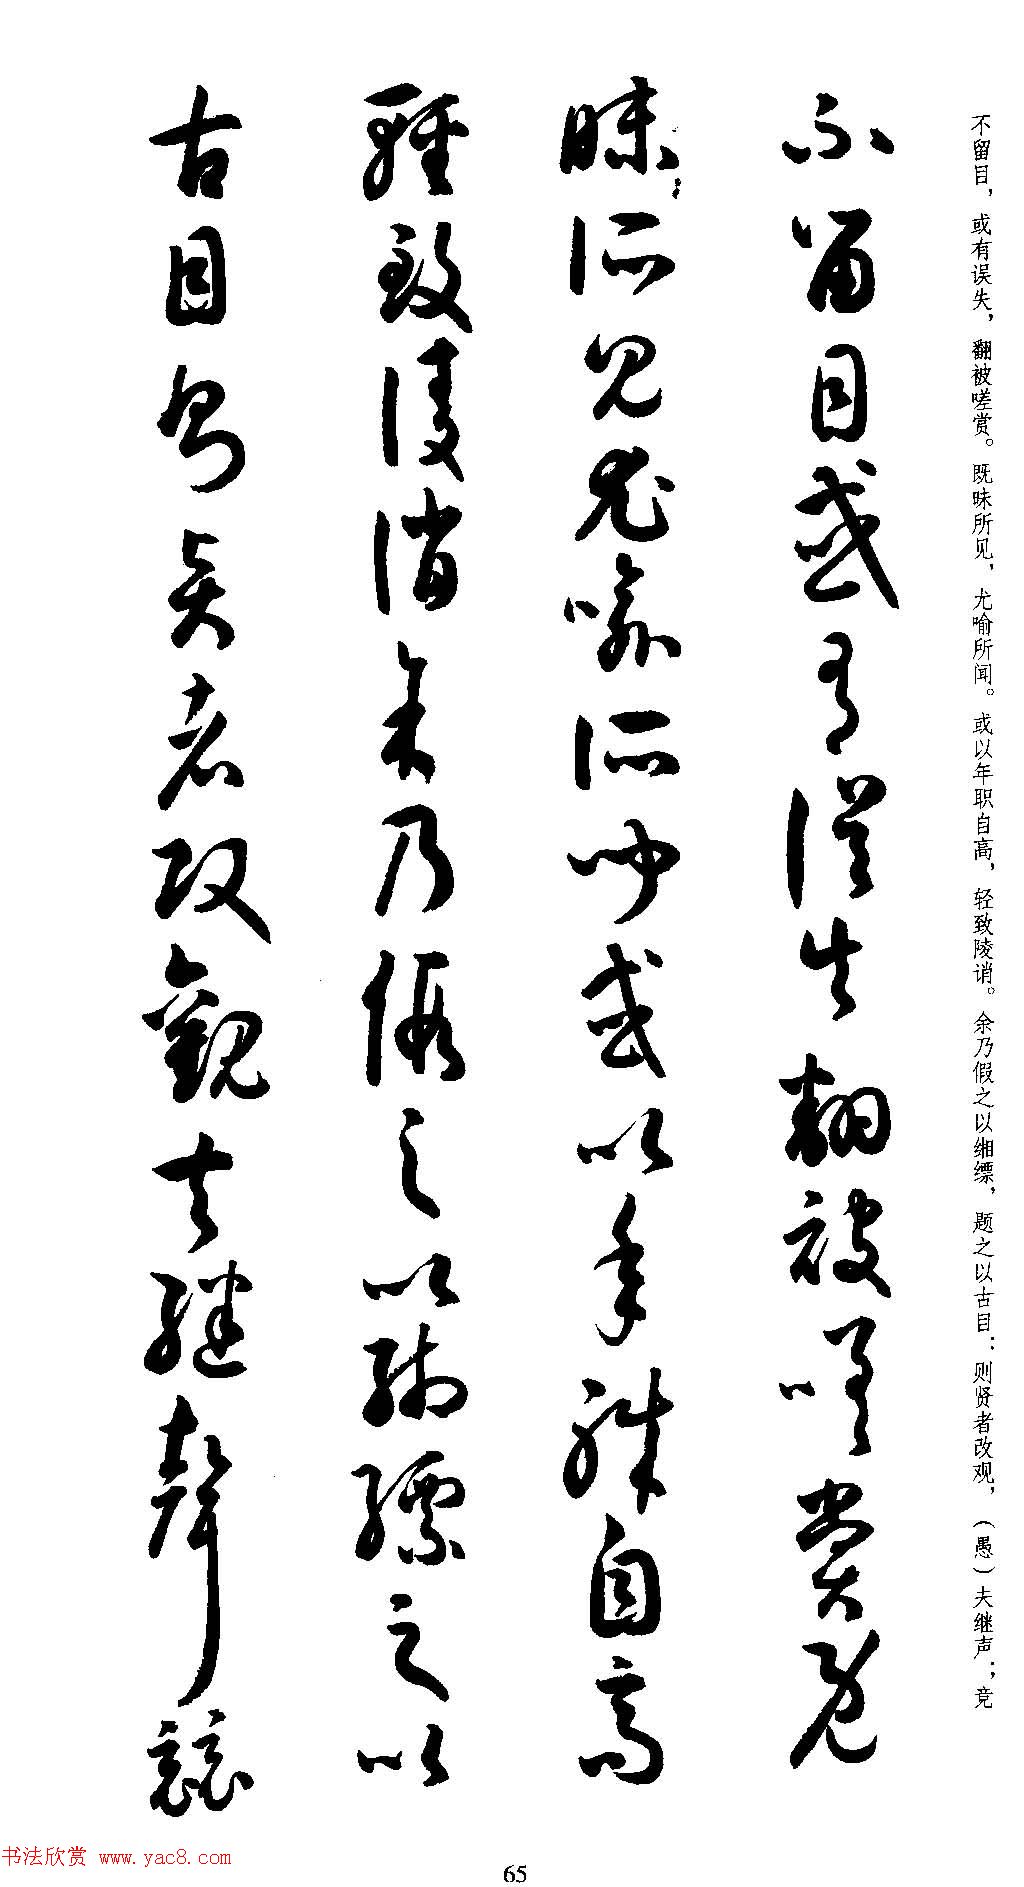 不留目，或有误失，翻被嗟赏。既昧所见，尤喻所闻。或以年职自高，轻致陵诮。余乃假之以缃缥，题之以古目：则贤者改观，（愚）夫继声；竞
不留目或有誤失翻被嗟賞既
昧所見尤喻所聞或以年職自高
輕致陵誚余乃假之以緗縹之以
古目則賢者改觀夫繼聲競
书法欣赏 www.yac8.com
65